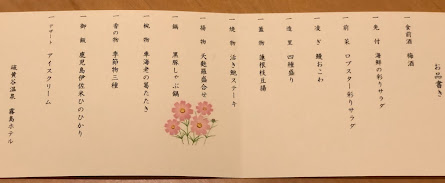 お品書き
一 食前酒 梅酒
一 先付 海鮮の彩りサラダ
一 前菜 ロブスター彩りサラダ
一 凌ぎ 鰻おこわ
一 造里 四種盛り
一 蓋物 蓮根枝豆饅
一 焼物 活き鮑ステーキ
一 揚物 天麩羅盛合せ
一 鍋 黒豚しゃぶ鍋
一 椀物 車海老の葛たたき
一 香の物 季節物三種
一 御飯 鹿児島伊佐米ひのひかり
一 デザート アイスクリーム
硫黄谷温泉 霧島ホテル